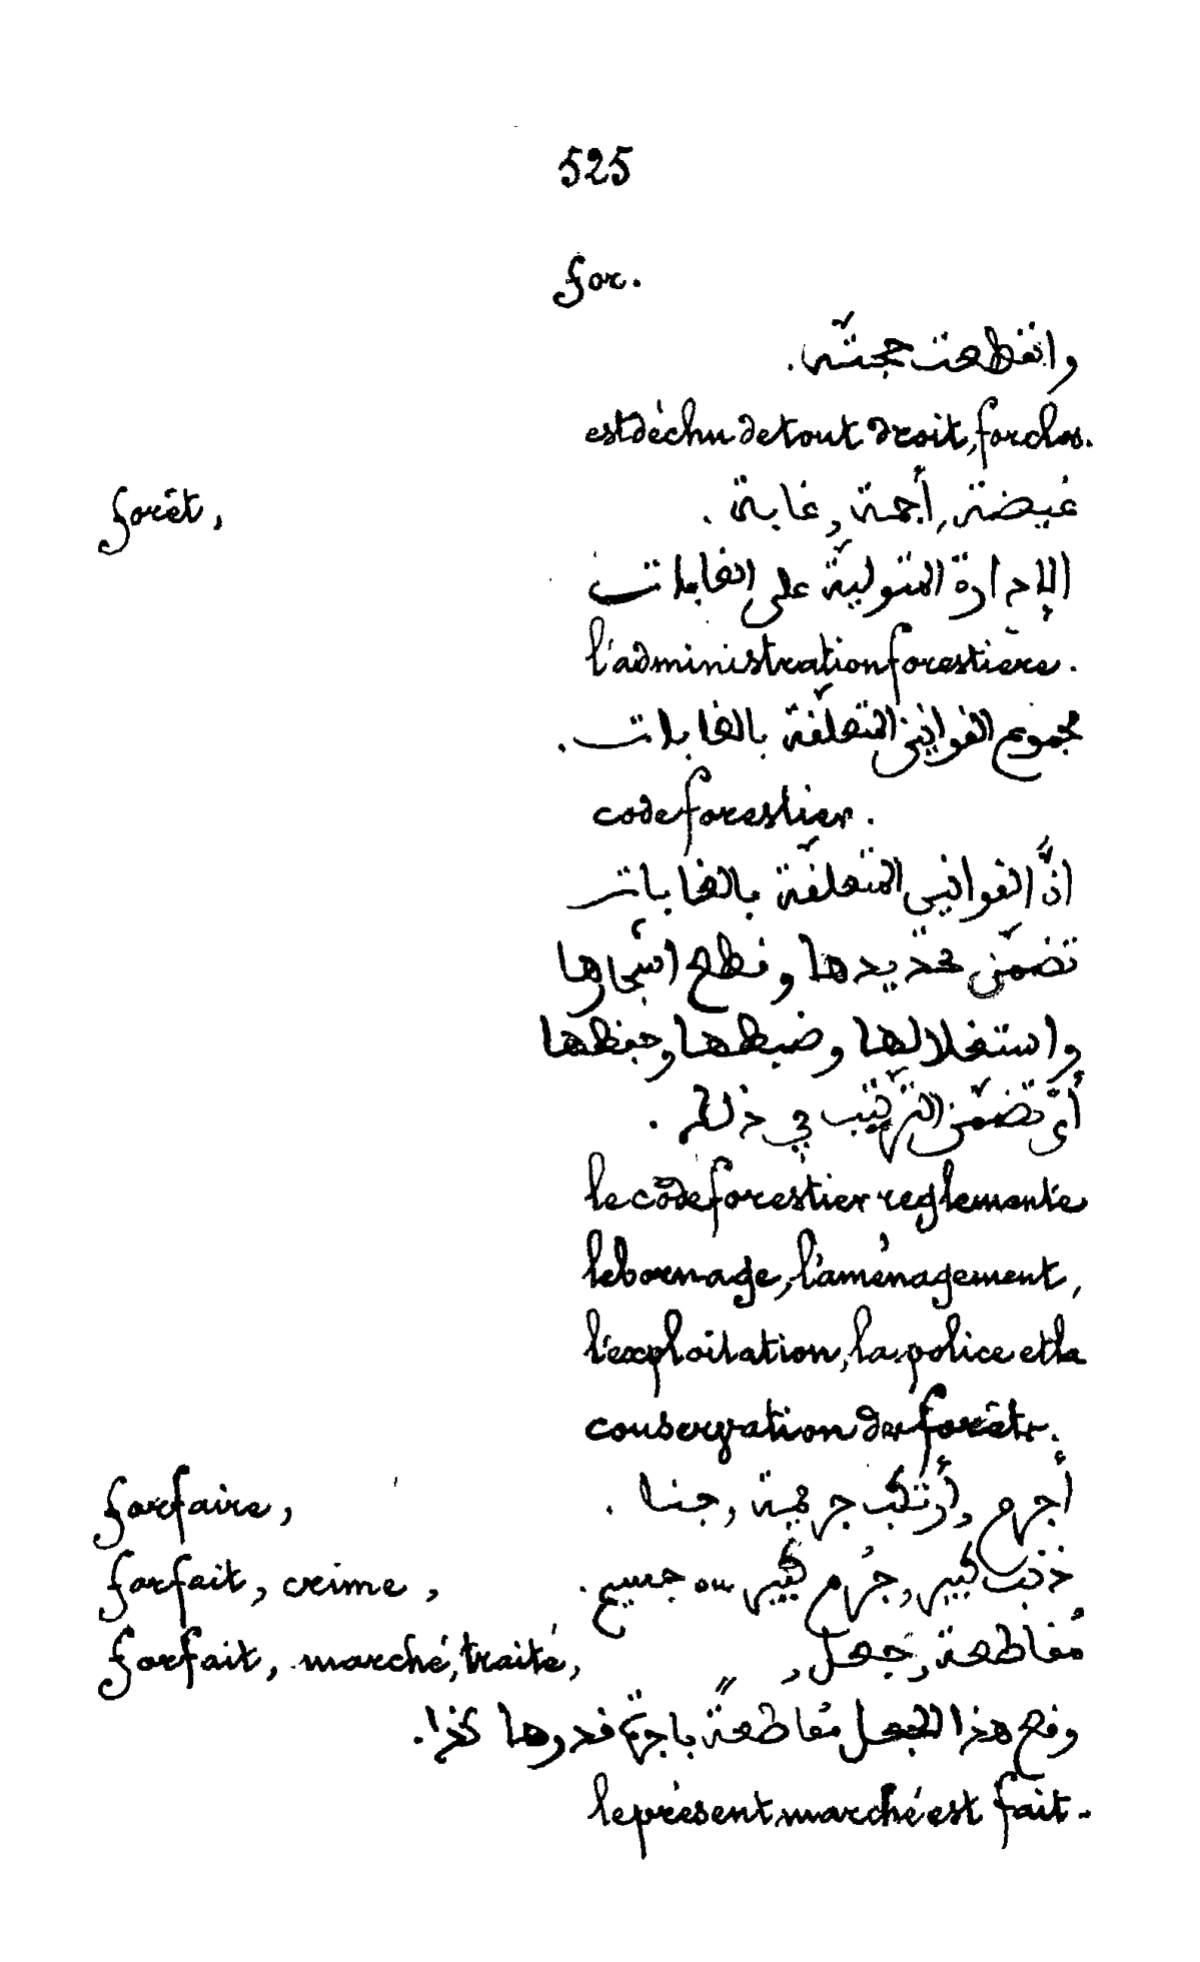 525
for.
وانقطعت حجّته.
est déchu de tout droit, forclos.
forêt, غيضة, أجمة, غابة.
الإدارة المتوليّة على الغابات
l'administration forestière.
مجموع القوانين المتعلّقة بالغابات.
code forestier.
انّ القوانين المتعلّقة بالغابات
تضمّن تحديدها وقطع اشجارها
واستغلالها وضبطها وحفظها
أي تضمّن الترتيب في ذلك.
le code forestier réglemente
le bornage, l'aménagement,
l'exploitation, la police et la
conservation des forêts.
forfaire, أجرم, أرتكب جريمة, جنا.
forfait, crime, ذنب كبير, جُرم كبير ou جسيم.
forfait, marché, traité, مُقاطعة, جعل,
وقع هذا الجعل مُقاطعةً باجرة قدرها كذا.
le présent marché est fait